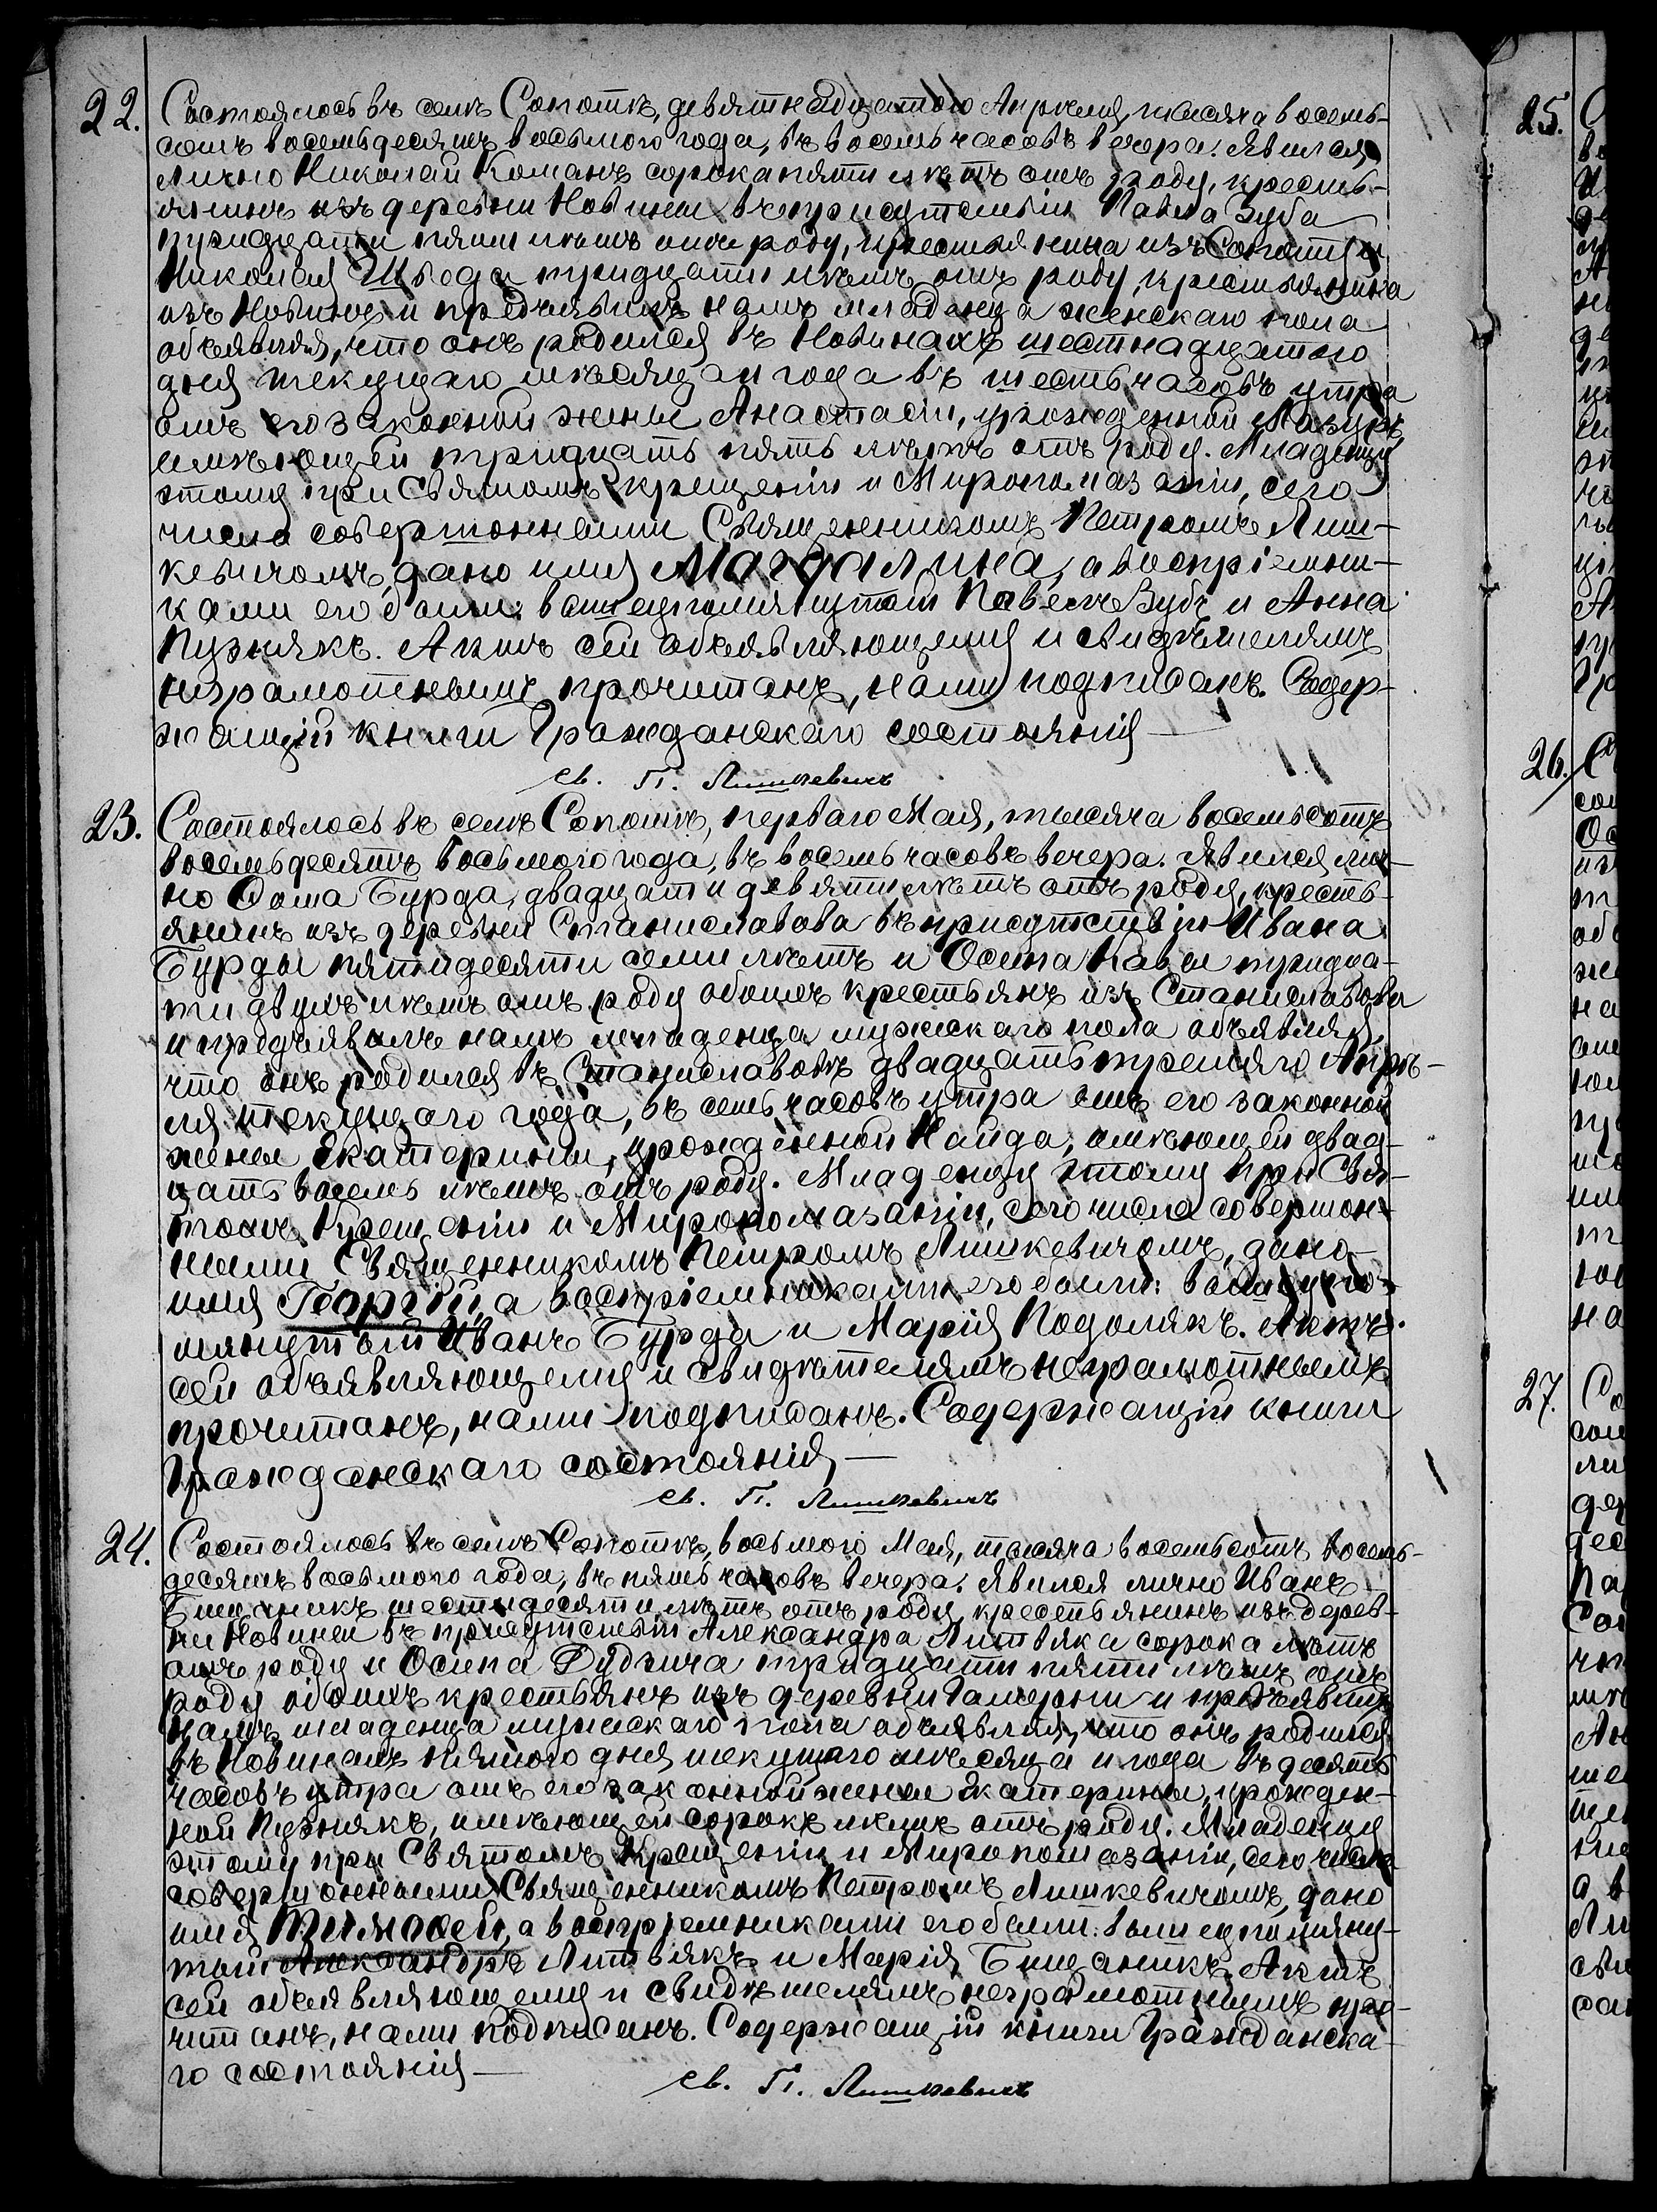 22. Состоялось въ селѣ Сопотѣ, девятнадцатого Апрѣля, тысяча восемь-
сотъ восемьдесятъ восьмого года, въ восемь часовъ вечера. Явился
лично Николай Команъ сорока пяти лѣтъ отъ роду, кресть-
янинъ изъ деревни Новины въ присутствіи Павла Зуба
тридцати пяти лѣтъ отъ роду, крестьянина изъ Сопота и
Николая Шведа тридцати лѣтъ отъ роду, крестьянина
изъ Новинъ и предъявилъ намъ младенца женскаго пола
объявляя, что онъ родился въ Новинахъ шестнадцатого
дня текущаго мѣсяца и года въ шесть часовъ утра
отъ его законной жены Анастасіи, урожденной Мазуръ,
имѣющей тридцать пять лѣтъ отъ роду. Младенцу
этому при Святомъ крещеніи и Миропомазаніи, сего
числа совершонными Священникомъ Петромъ Лиш-
кевичомъ, дано имя Магдалина, а воспріемни-
ками его были: вышеупомянутый Павелъ Зубъ и Анна
Пузнякъ. Актъ сей объявляющему и свидѣтелямъ
неграмотнымъ прочитанъ, нами подписанъ. Содер-
жащій книги Гражданскаго состоянія —
св. П. Лишкевичъ
23. Состоялось въ селѣ Сопотѣ, перваго Мая, тысяча восемьсотъ
восемьдесятъ восьмого года, въ восемь часовъ вечера. Явился лич-
но Фома Бурда, двадцати девяти лѣтъ отъ роду, кресть-
янинъ изъ деревни Станиславова въ присутствіи Ивана
Бурды пятидесяти семи лѣтъ и Осипа Кавы тридца-
ти двухъ лѣтъ отъ роду обоихъ крестьянъ изъ Станиславова
и предъявилъ намъ младенца мужскаго пола объявляя,
что онъ родился въ Станиславовѣ двадцать третьяго Апрѣ-
ля текущаго года, въ семь часовъ утра отъ его законной
жены Екатерины, урожденной Найда, имѣющей двад-
цать восемь лѣтъ отъ роду. Младенцу этому при Свя-
томъ Крещеніи и Миропомазаніи, сего числа совершон-
ными Священникомъ Петромъ Лишкевичомъ, дано
имя Георгій, а воспріемниками его были: вышеупо-
мянутый Иванъ Бурда и Марія Подолякъ. Актъ
сей объявляющему и свидѣтелямъ неграмотнымъ
прочитанъ, нами подписанъ. Содержащій книги
Гражданскаго состоянія, —
св. П. Лишкевичъ
24. Состоялось въ селѣ Сопотѣ, восьмого Мая, тысяча восемьсотъ восемь-
десятъ восьмого года, въ пять часовъ вечера. Явился лично Иванъ
Бищаникъ шестидесяти лѣтъ отъ роду, крестьянинъ изъ дерев-
ни Новины въ присутствіи Александра Литвяка сорока лѣтъ
отъ роду и Осипа Дудзича тридцати пяти лѣтъ отъ
роду обоихъ крестьянъ изъ деревни Гамерни и предъявилъ
намъ младенца мужскаго пола объявляя, что онъ родился
въ Новинахъ пятого дня текущаго мѣсяца и года въ десять
часовъ утра отъ его законной жены Екатерины, урожден-
ной Пузнякъ, имѣющей сорокъ лѣтъ отъ роду. Младенцу
этому при Святомъ Крещеніи и Миропомазаніи, сего числа
совершонными Священникомъ Петромъ Лишкевичомъ, дано
имя Тимофей, а воспріемниками его были: вышеупомяну-
тый Александръ Литвякъ и Марія Бищаникъ. Актъ
сей объявляющему и свидѣтелямъ неграмотнымъ про-
читанъ, нами подписанъ. Содержащій книги Гражданска-
го состоянія —
св. П. Лишкевичъ
25.
26.
27.